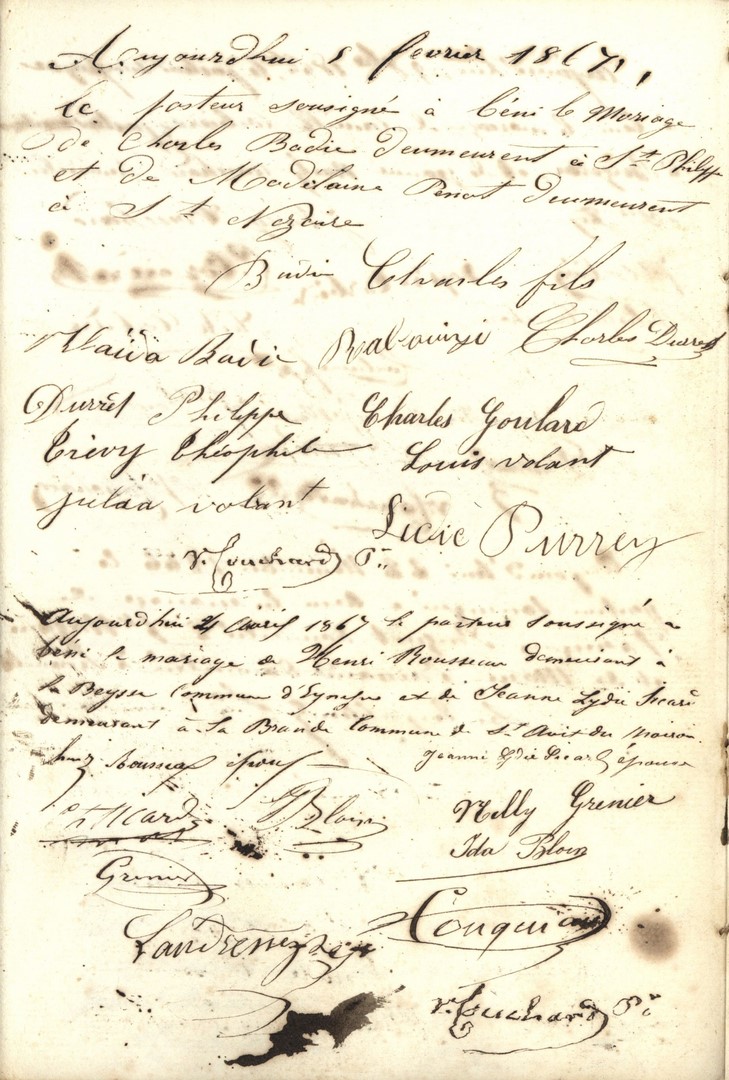 Aujourdhui 5 fevrier 1867,
le pasteur sousigné à béni le Mariage
de Charles Badie deumeurent à St. Philippe
et de Madélaine Penot deumeurent
à St Nazaire
Badie Charles fils
Naïda Badie Charles Durret
Durret Philippe Charles Goulard
Trévy théophile Louis volant
juléa volant
Lidie Purrey
V. Couchard Pr.
Aujourdhui 4 avril 1867 le pasteur soussigné a
béni le mariage de Henri Rousseau demeurant à
la Beysse Commune d'Eynesse et de Jeanne Lydie Sicard
demeurant à La Brande Commune de St Avit du moiron
henry Rousseau époux Jeanne Lydie Sicard épouse
Sicard Bloin Nelly Grenier
Ida Bloin
Grenier
V. Couchard Pr.